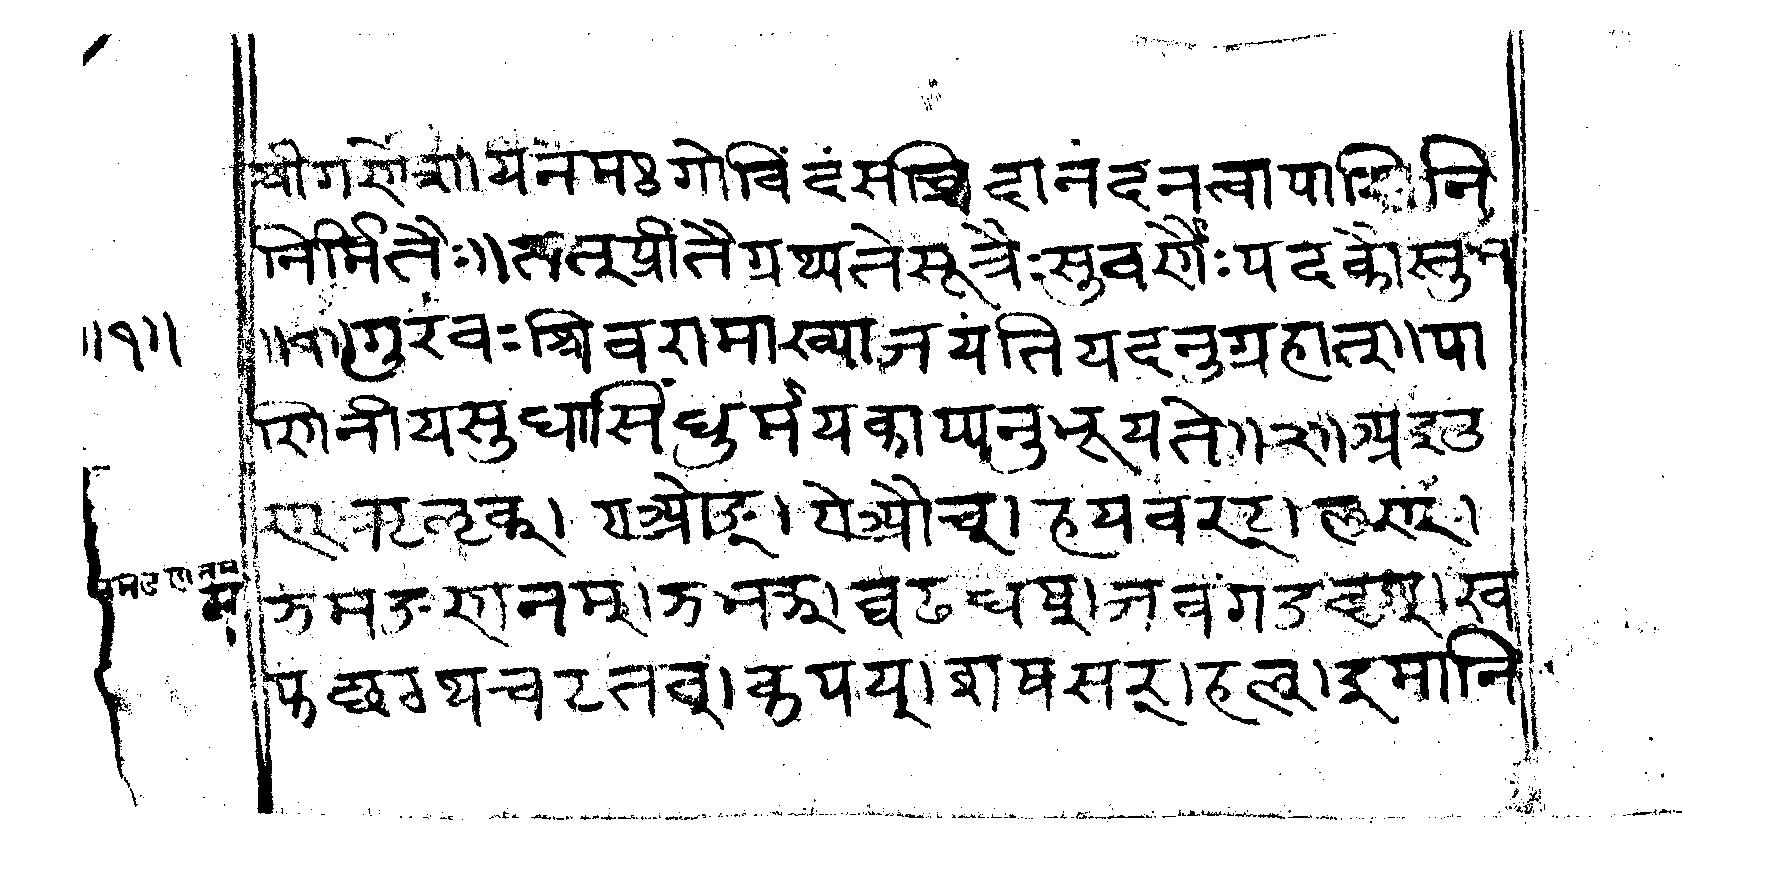 श्रीगणेशायनमः गोविंदंसच्चिदानंदनत्वापाणिनि
निर्मितैः॥तत्प्रीतैग्रथ्यतेसूत्रैःसुवर्णैःपदकौस्तुभ
॥१॥
॥१॥गुरवःशिवरामाख्याजयंतियदनुग्रहात्॥पा
णिनीयसुधासिंधुर्मयकाप्यनुभूयते॥२॥अइउ
ण्।ऋऌक्।एओङ्।ऐऔच्।हयवरट्।लण्।
ञमङणनम्।झभञ्।घढधष्।जबगडदश्।ख
फछठथचटतव्।कपय्।शषसर्।हल्।इमानि